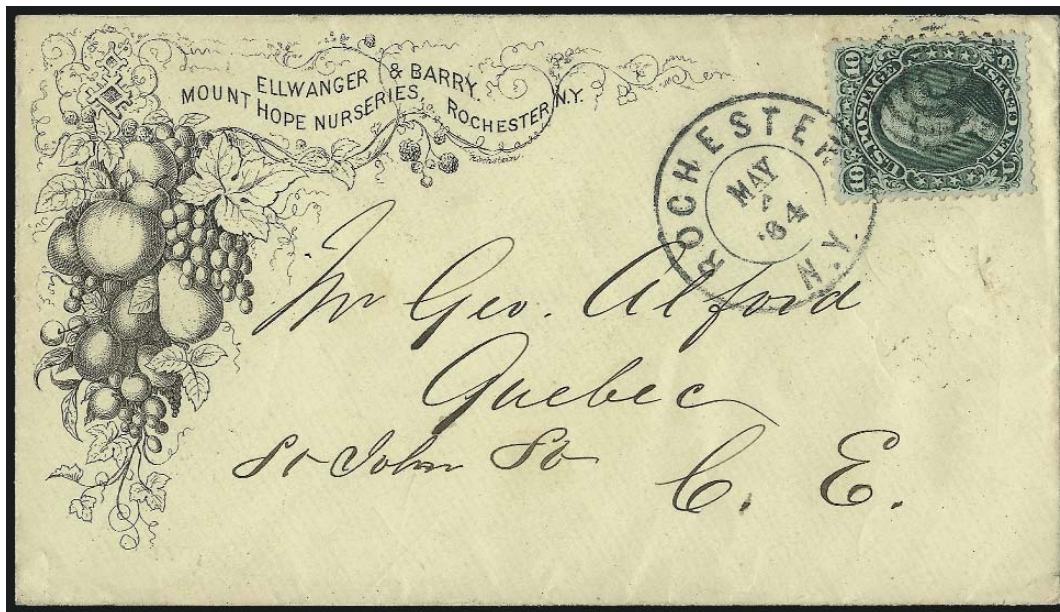 ELLWANGER & BARRY.
MOUNT HOPE NURSERIES, ROCHESTER, N.Y.
ROCHESTER N.Y.
MAY
'64
10 U.S. POSTAGE 10
TEN CENTS
Mr Geo. Alford
Quebec
St John St
C. E.